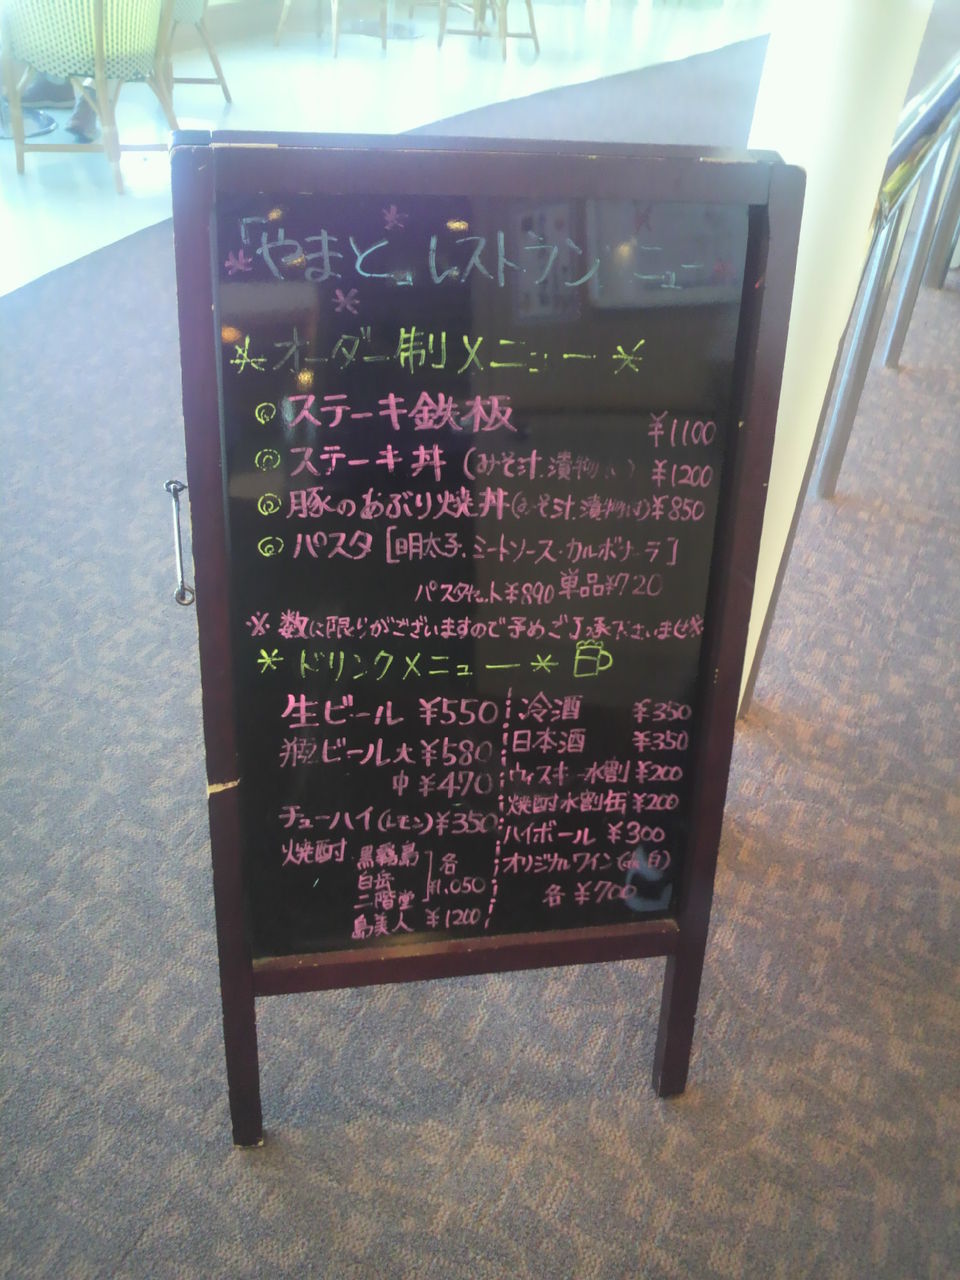 「やまと」レストランメニュー
＊オーダー制メニュー＊
◎ステーキ鉄板 ¥1100
◎ステーキ丼(みそ汁.漬物 ) ¥1200
◎豚のあぶり焼丼(みそ汁.漬物 ) ¥850
◎パスタ[明太子.ミートソース・カルボナーラ]
パスタセット¥890 単品¥720
※数に限りがございますので予めご了承下さいませ※
＊ドリンクメニュー＊
生ビール ¥550
瓶ビール大¥580
中¥470
チューハイ(レモン)¥350
焼酎 黒霧島 各
白岳 ¥1,050
二階堂
島美人 ¥1200
冷酒 ¥350
日本酒 ¥350
ウィスキー水割 ¥200
焼酎水割缶¥200
ハイボール ¥300
オリジナルワイン( 白)
各 ¥700